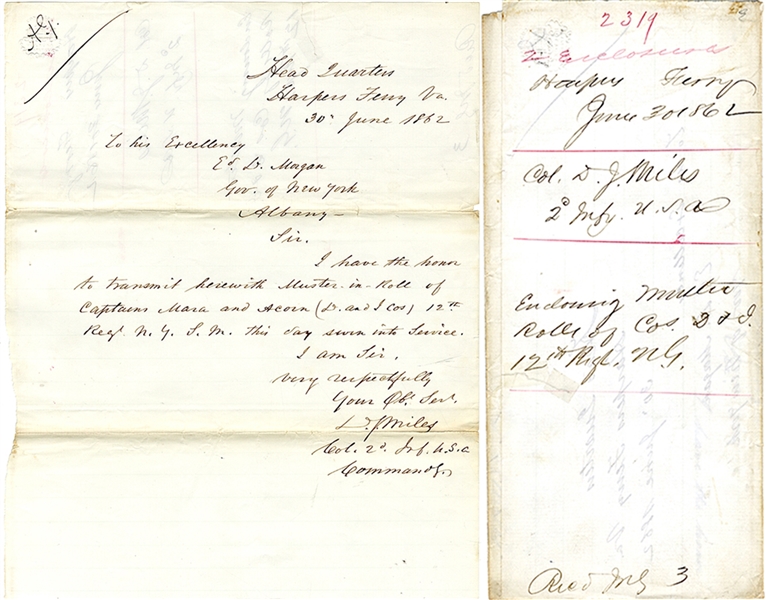 Head Quarters
Harpers Ferry Va.
30th June 1862
To his Excellency
Ed. D. Morgan
Gov. of New York
Albany —
Sir.
I have the honor
to transmit herewith Muster-in-Roll of
Captains Mara and Acorn (D. and I Cos) 12th
Regt. N. Y. S. M. this day sworn into Service.
I am Sir,
very respectfully
Your Obt. Servt.
D. S. Miles
Col. 2d. Inf. U.S.A
Commandg.
2319
2 Enclosures
Harpers Ferry
June 30 1862
Col. D. S. Miles
2d Infy. U.S.A
Enclosing Muster
Rolls of Cos. D & I.
12th Regt. N.G.
Recd July 3